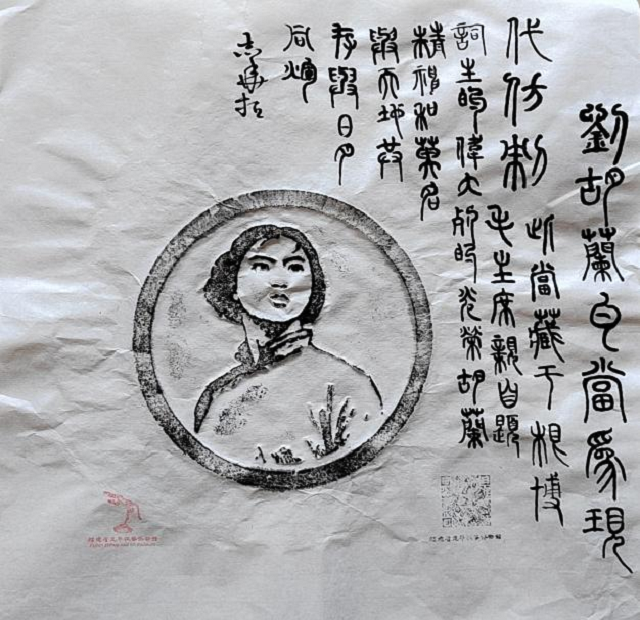 劉胡蘭瓦當為現
代仿制此當藏于根博
毛主席親自題
詞生的偉大死的光榮胡蘭
精神和英名
與天地共
存與日月
同輝
志華拓